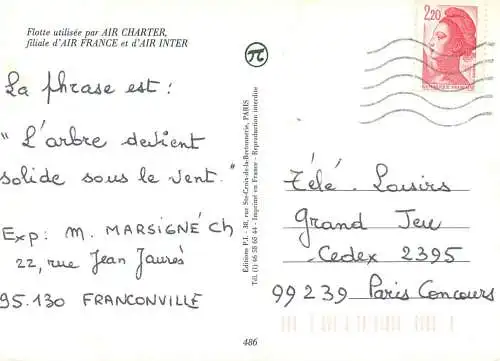 Flotte utilisée par AIR CHARTER,
filiale d'AIR FRANCE et d'AIR INTER
La phrase est :
" L'arbre devient
solide sous le vent. "
Exp : M. MARSIGNÉ Ch
22, rue Jean Jaurès
95.130 FRANCONVILLE
Editions P.I. - 38, rue Ste-Croix-de-la-Bretonnerie, PARIS
Tél. (1) 46 58 60 44 - Imprimé en France - Reproduction interdite
486
2,20
REPUBLIQUE FRANÇAISE
Télé Loisirs
Grand Jeu
Cedex 2395
99239 Paris Concours